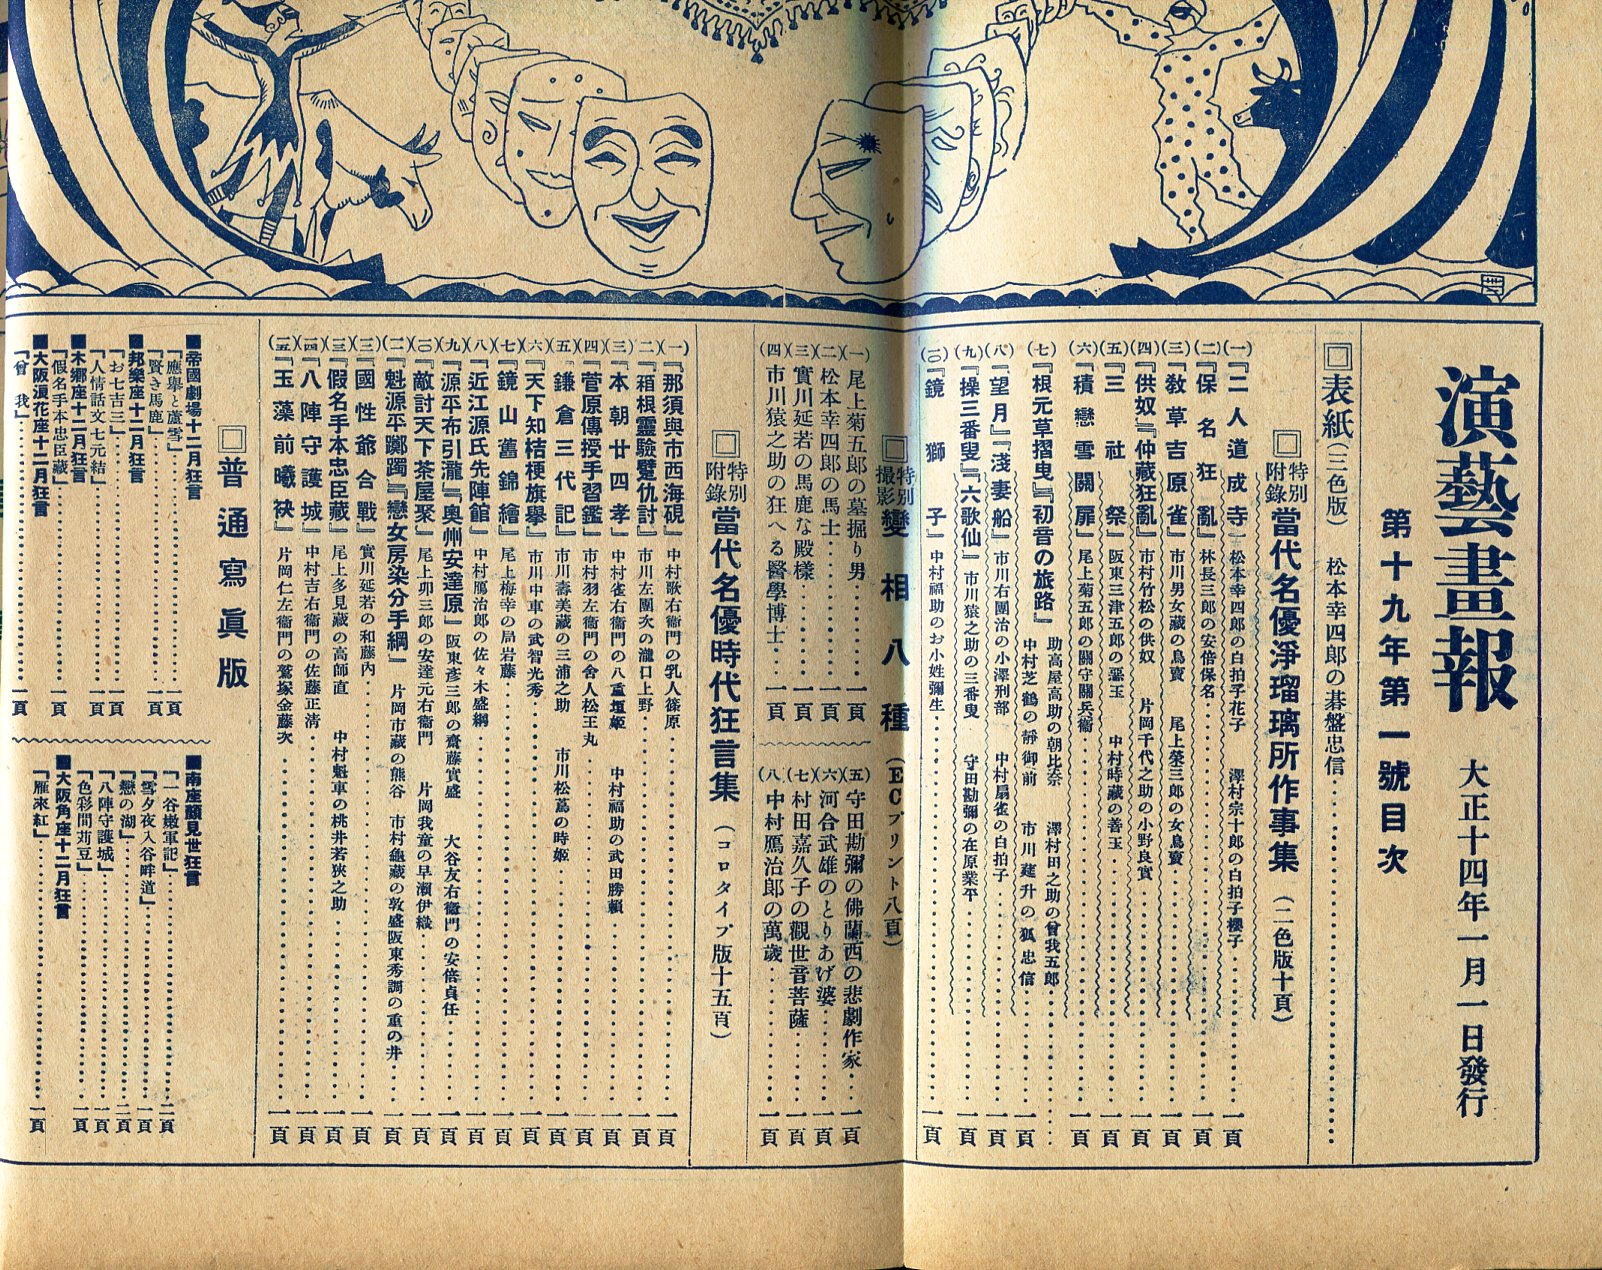 演藝畫報
第十九年第一號目次
大正十四年一月一日發行
□表紙(三色版) 松本幸四郎の碁盤忠信
□特別附錄 當代名優淨瑠璃所作事集 (二色版十頁)
(一)『二人道成寺』松本幸四郎の白拍子花子 澤村宗十郎の白拍子櫻子 一頁
(二)『保名狂亂』林長三郎の安倍保名 一頁
(三)『敎草吉原雀』市川男女藏の鳥賣 尾上榮三郎の女鳥賣 一頁
(四)『供奴』『仲藏狂亂』市村竹松の供奴 片岡千代之助の小野良實 一頁
(五)『三社祭』阪東三津五郎の惡玉 中村時藏の善玉 一頁
(六)『積戀雪關扉』尾上菊五郎の關守關兵衞 一頁
(七)『根元草摺曳』『初音の旅路』助高屋高助の朝比奈 澤村田之助の曾我五郎 中村芝鶴の靜御前 市川莚升の狐忠信 一頁
(八)『望月』『淺妻船』市川右團治の小澤刑部 中村扇雀の白拍子 一頁
(九)『操三番叟』『六歌仙』市川猿之助の三番叟 守田勘彌の在原業平 一頁
(一〇)『鏡獅子』中村福助のお小姓彌生 一頁
□特別撮影 變相八種 (ECプリント八頁)
(一)尾上菊五郎の墓掘り男 一頁
(二)松本幸四郎の馬士 一頁
(三)實川延若の馬鹿な殿樣 一頁
(四)市川猿之助の狂へる醫學博士 一頁
(五)守田勘彌の佛蘭西の悲劇作家 一頁
(六)河合武雄のとりあげ婆 一頁
(七)村田嘉久子の觀世音菩薩 一頁
(八)中村鴈治郎の萬歲 一頁
□特別附錄 當代名優時代狂言集 (コロタイプ版十五頁)
(一)『那須與市西海硯』中村歌右衞門の乳人篠原 一頁
(二)『箱根靈驗躄仇討』市川左團次の瀧口上野 一頁
(三)『本朝廿四孝』中村雀右衞門の八重垣姬 中村福助の武田勝賴 一頁
(四)『菅原傳授手習鑑』市村羽左衞門の舍人松王丸 一頁
(五)『鎌倉三代記』市川壽美藏の三浦之助 市川松蔦の時姬 一頁
(六)『天下知桔梗旗擧』市川中車の武智光秀 一頁
(七)『鏡山舊錦繪』尾上梅幸の局岩藤 一頁
(八)『近江源氏先陣館』中村鴈治郎の佐々木盛綱 一頁
(九)『源平布引瀧』『奧州安達原』阪東彥三郎の齋藤實盛 大谷友右衞門の安倍貞任 一頁
(一〇)『敵討天下茶屋聚』尾上卯三郎の安達元右衞門 片岡我童の早瀨伊織 一頁
(一一)『魁源平躑躅』『戀女房染分手綱』片岡市藏の熊谷 市村龜藏の敦盛 阪東秀調の重の井 一頁
(一二)『國性爺合戰』實川延若の和藤內 一頁
(一三)『假名手本忠臣藏』尾上多見藏の高師直 中村魁車の桃井若狹之助 一頁
(一四)『八陣守護城』中村吉右衞門の佐藤正清 一頁
(一五)『玉藻前曦袂』片岡仁左衞門の鷲塚金藤次 一頁
□普通寫眞版
■帝國劇場十二月狂言
「應擧と蘆雪」 一頁
「賢き馬鹿」 一頁
■邦樂座十二月狂言
「お七吉三」 一頁
「人情話文七元結」 一頁
■本鄕座十二月狂言
「假名手本忠臣藏」 一頁
■大阪浪花座十二月狂言
「曾我」 一頁
■南座顏見世狂言
「一谷嫩軍記」 二頁
「雪夕夜入谷畔道」 一頁
「戀の湖」 二頁
「八陣守護城」 一頁
「色彩間苅豆」 一頁
■大阪角座十二月狂言
「雁來紅」 一頁